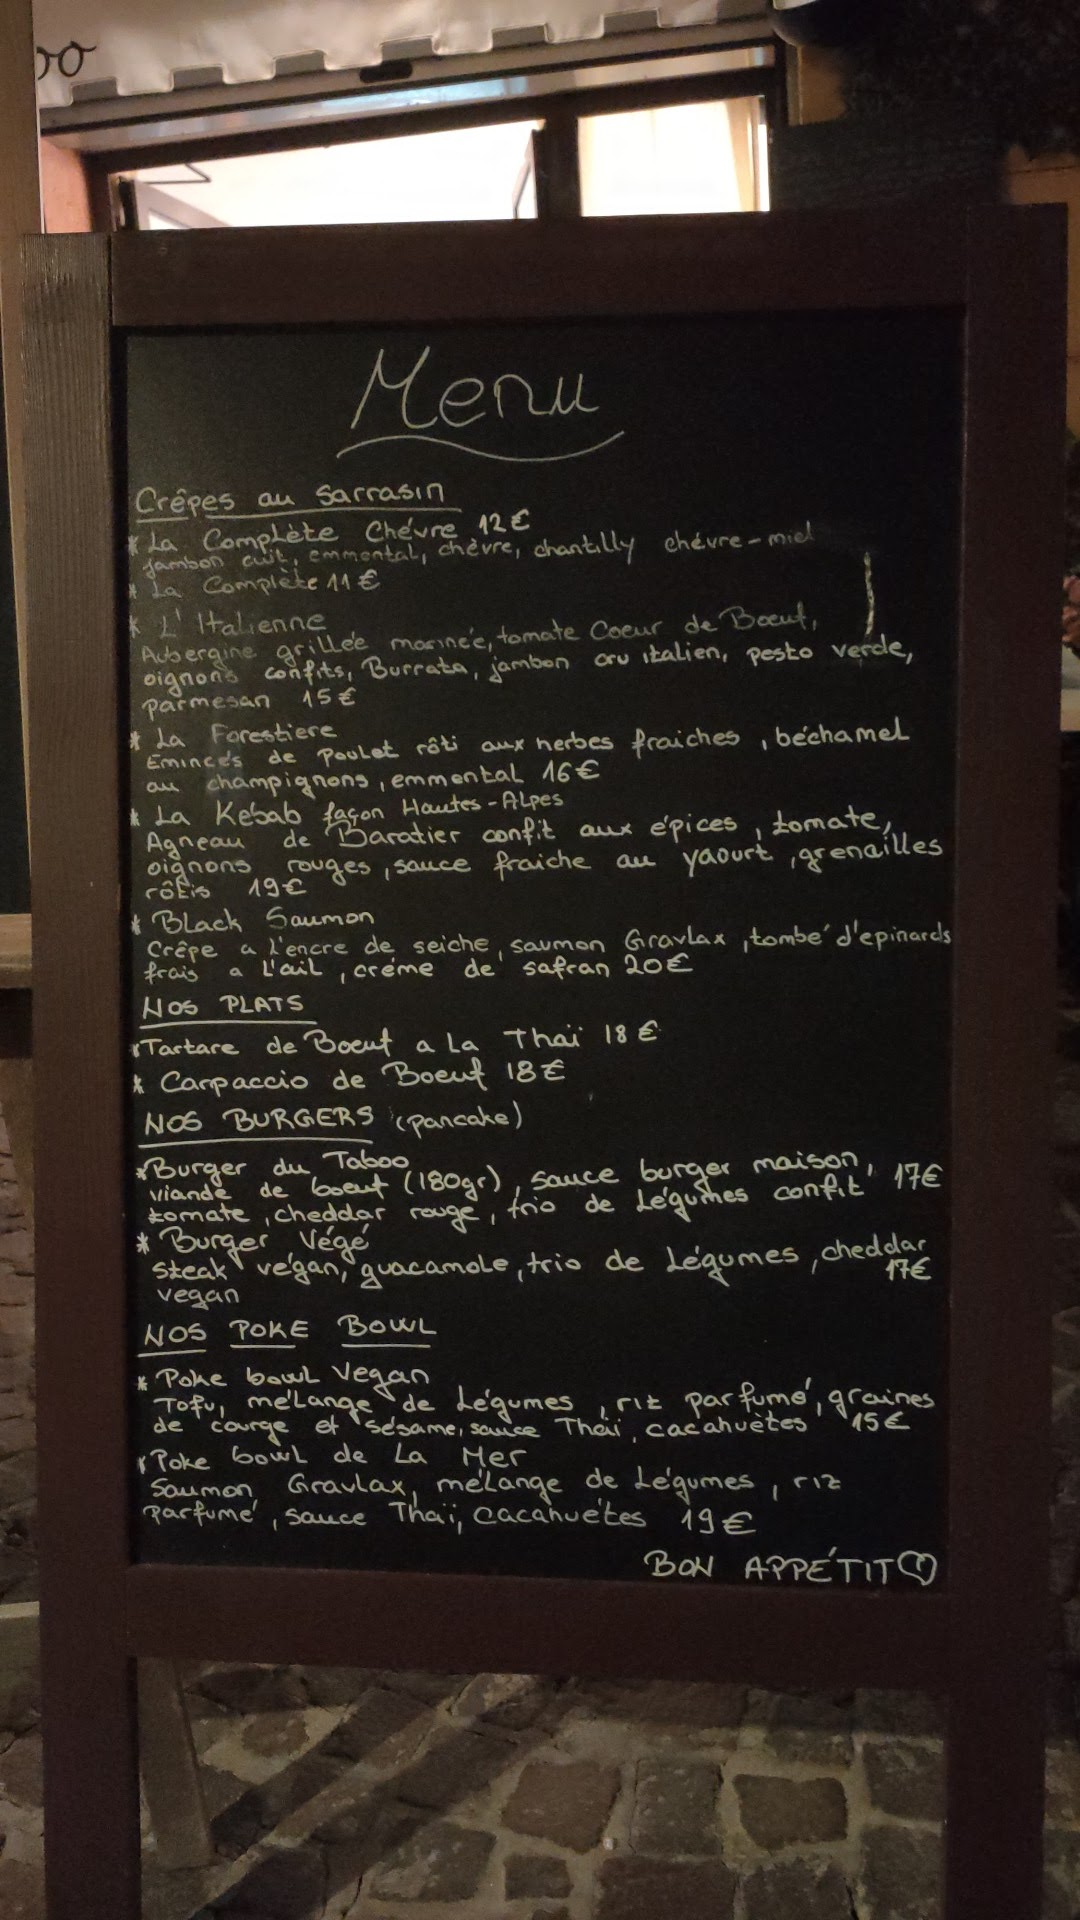 oo
Menu
Crêpes au Sarrasin
* La Complète Chévre 12€
jambon cuit, emmental, chèvre, chantilly chévre-miel
* La Complète 11€
* L'Italienne
Aubergine grillée marinée, tomate Coeur de Boeuf,
oignons confits, Burrata, jambon cru italien, pesto verde,
parmesan 15€
* La Forestiere
Emincés de Poulet rôti aux herbes fraiches, béchamel
au champignons, emmental 16€
* La Kebab façon Hautes-Alpes
Agneau de Baratier confit aux épices, tomate,
oignons rouges, sauce fraiche au yaourt, grenailles
rôtis 19€
* Black Saumon
Crêpe a l'encre de seiche, saumon Gravlax, tombé d'epinards
frais a L'ail, créme de safran 20€
NOS PLATS
* Tartare de Boeuf a La Thaï 18€
* Carpaccio de Boeuf 18€
NOS BURGERS (pancake)
* Burger du Taboo
viande de boeuf (180gr), sauce burger maison, 17€
tomate, cheddar rouge, trio de Légumes confit
* Burger Végé
Steak végan, guacamole, trio de Légumes, cheddar
vegan 17€
NOS POKE BOWL
* Poke bowl Vegan
Tofu, mélange de Légumes, riz parfumé, graines
de courge et sésame, sauce Thaï, cacahuètes 15€
* Poke bowl de La Mer
Saumon Gravlax, mélange de Légumes, riz
Parfumé, sauce Thaï, cacahuétes 19€
BON APPÉTIT♡